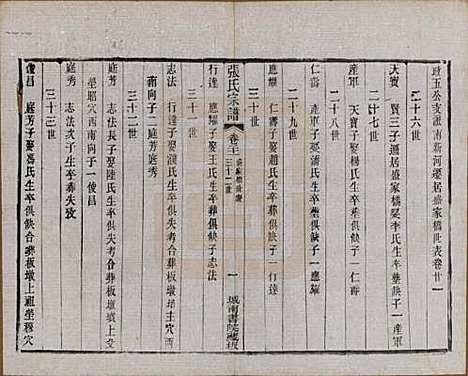 政五公支派南新河遷居盛家橋世表卷廿一
二十六世
天寶 賢三子遷居盛家橋娶李氏生卒葬俱缺子一產軍
二十七世
產軍 天寶子娶楊氏生卒葬俱缺子一仁壽
二十八世
仁壽 產軍子娶潘氏生卒葬俱缺子一應耀
二十九世
應耀 仁壽子娶趙氏生卒葬俱缺子一行達
三十世
張氏宗譜 卷廿一 三十二世 一 城南書院藏板
行達 應耀子娶王氏生卒俱缺子一志法
三十一世
志法 行達子娶濮氏生卒俱失考合葬板墩上祖塋主穴酉
南向子二庭芳庭秀
三十二世
庭芳 志法長子娶陸氏生卒俱失考合葬板墩上祖
塋昭穴酉南向子一俊昌
庭秀 志法次子生卒葬失攷
三十三世
俊昌 庭芳子娶馮氏生卒俱缺合葬板墩上祖塋穆穴